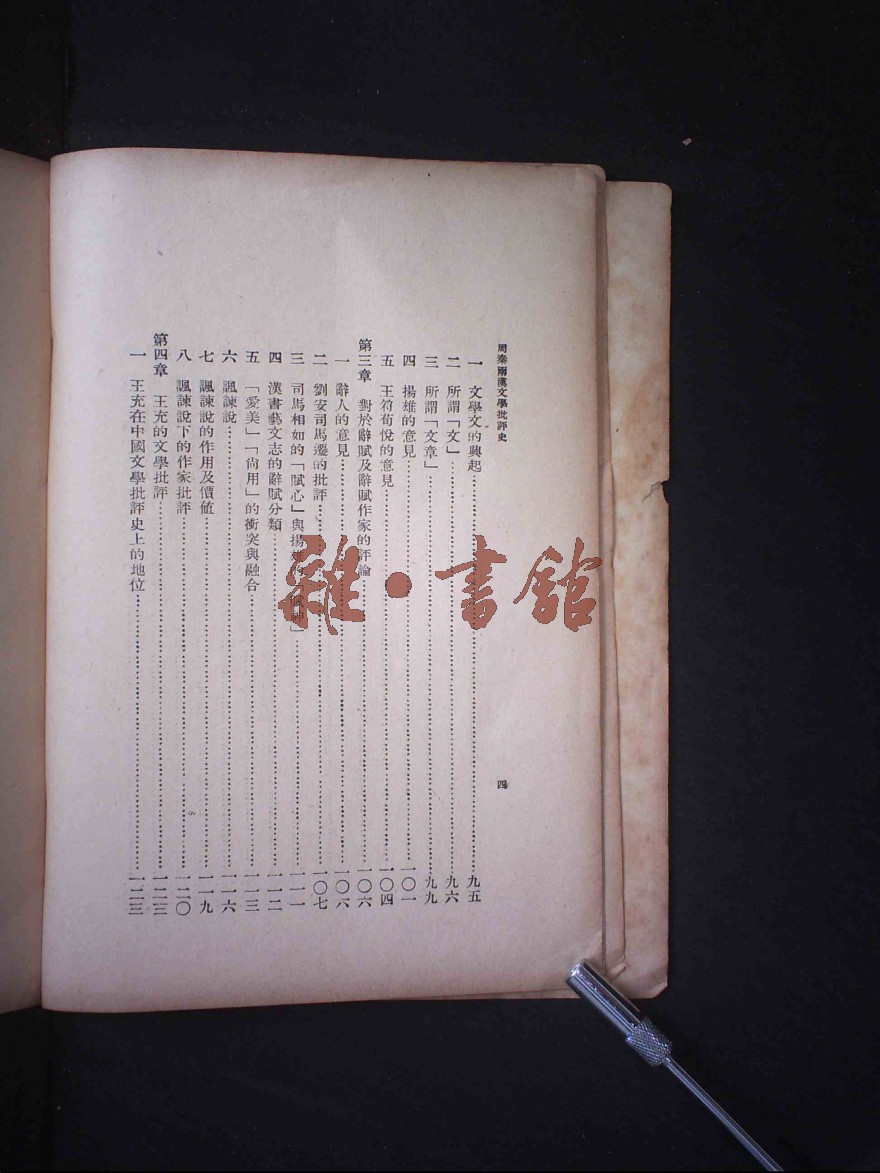 周秦兩漢文學批評史
四
一 文學文的興起 九五
二 所謂「文」 九六
三 所謂「文章」 九九
四 揚雄的意見 一〇一
五 王符荀悅的意見 一〇四
第三章 對於辭賦及辭賦作家的評論 一〇六
一 辭人的意見 一〇六
二 劉安司馬遷的批評 一〇七
三 司馬相如的「賦心」與揚雄的 」 一一一
四 漢書藝文志的辭賦分類 一一二
五 「愛美」「尙用」的衝突與融合 一一三
六 諷諫說 一一六
七 諷諫說的作用及價値 一一九
八 諷諫說下的作家批評 一二〇
第四章 王充的文學批評 一二三
一 王充在中國文學批評史上的地位 一二三
雜·書館